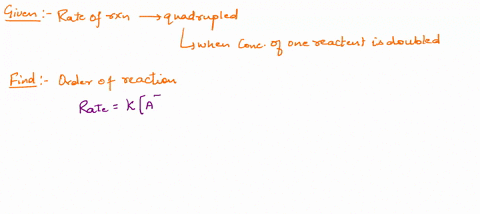 Given:- Rate of rxn → quadrupled
↳ when Conc. of one reactent is doubled
Find:- Order of reaction
Rate = K[A